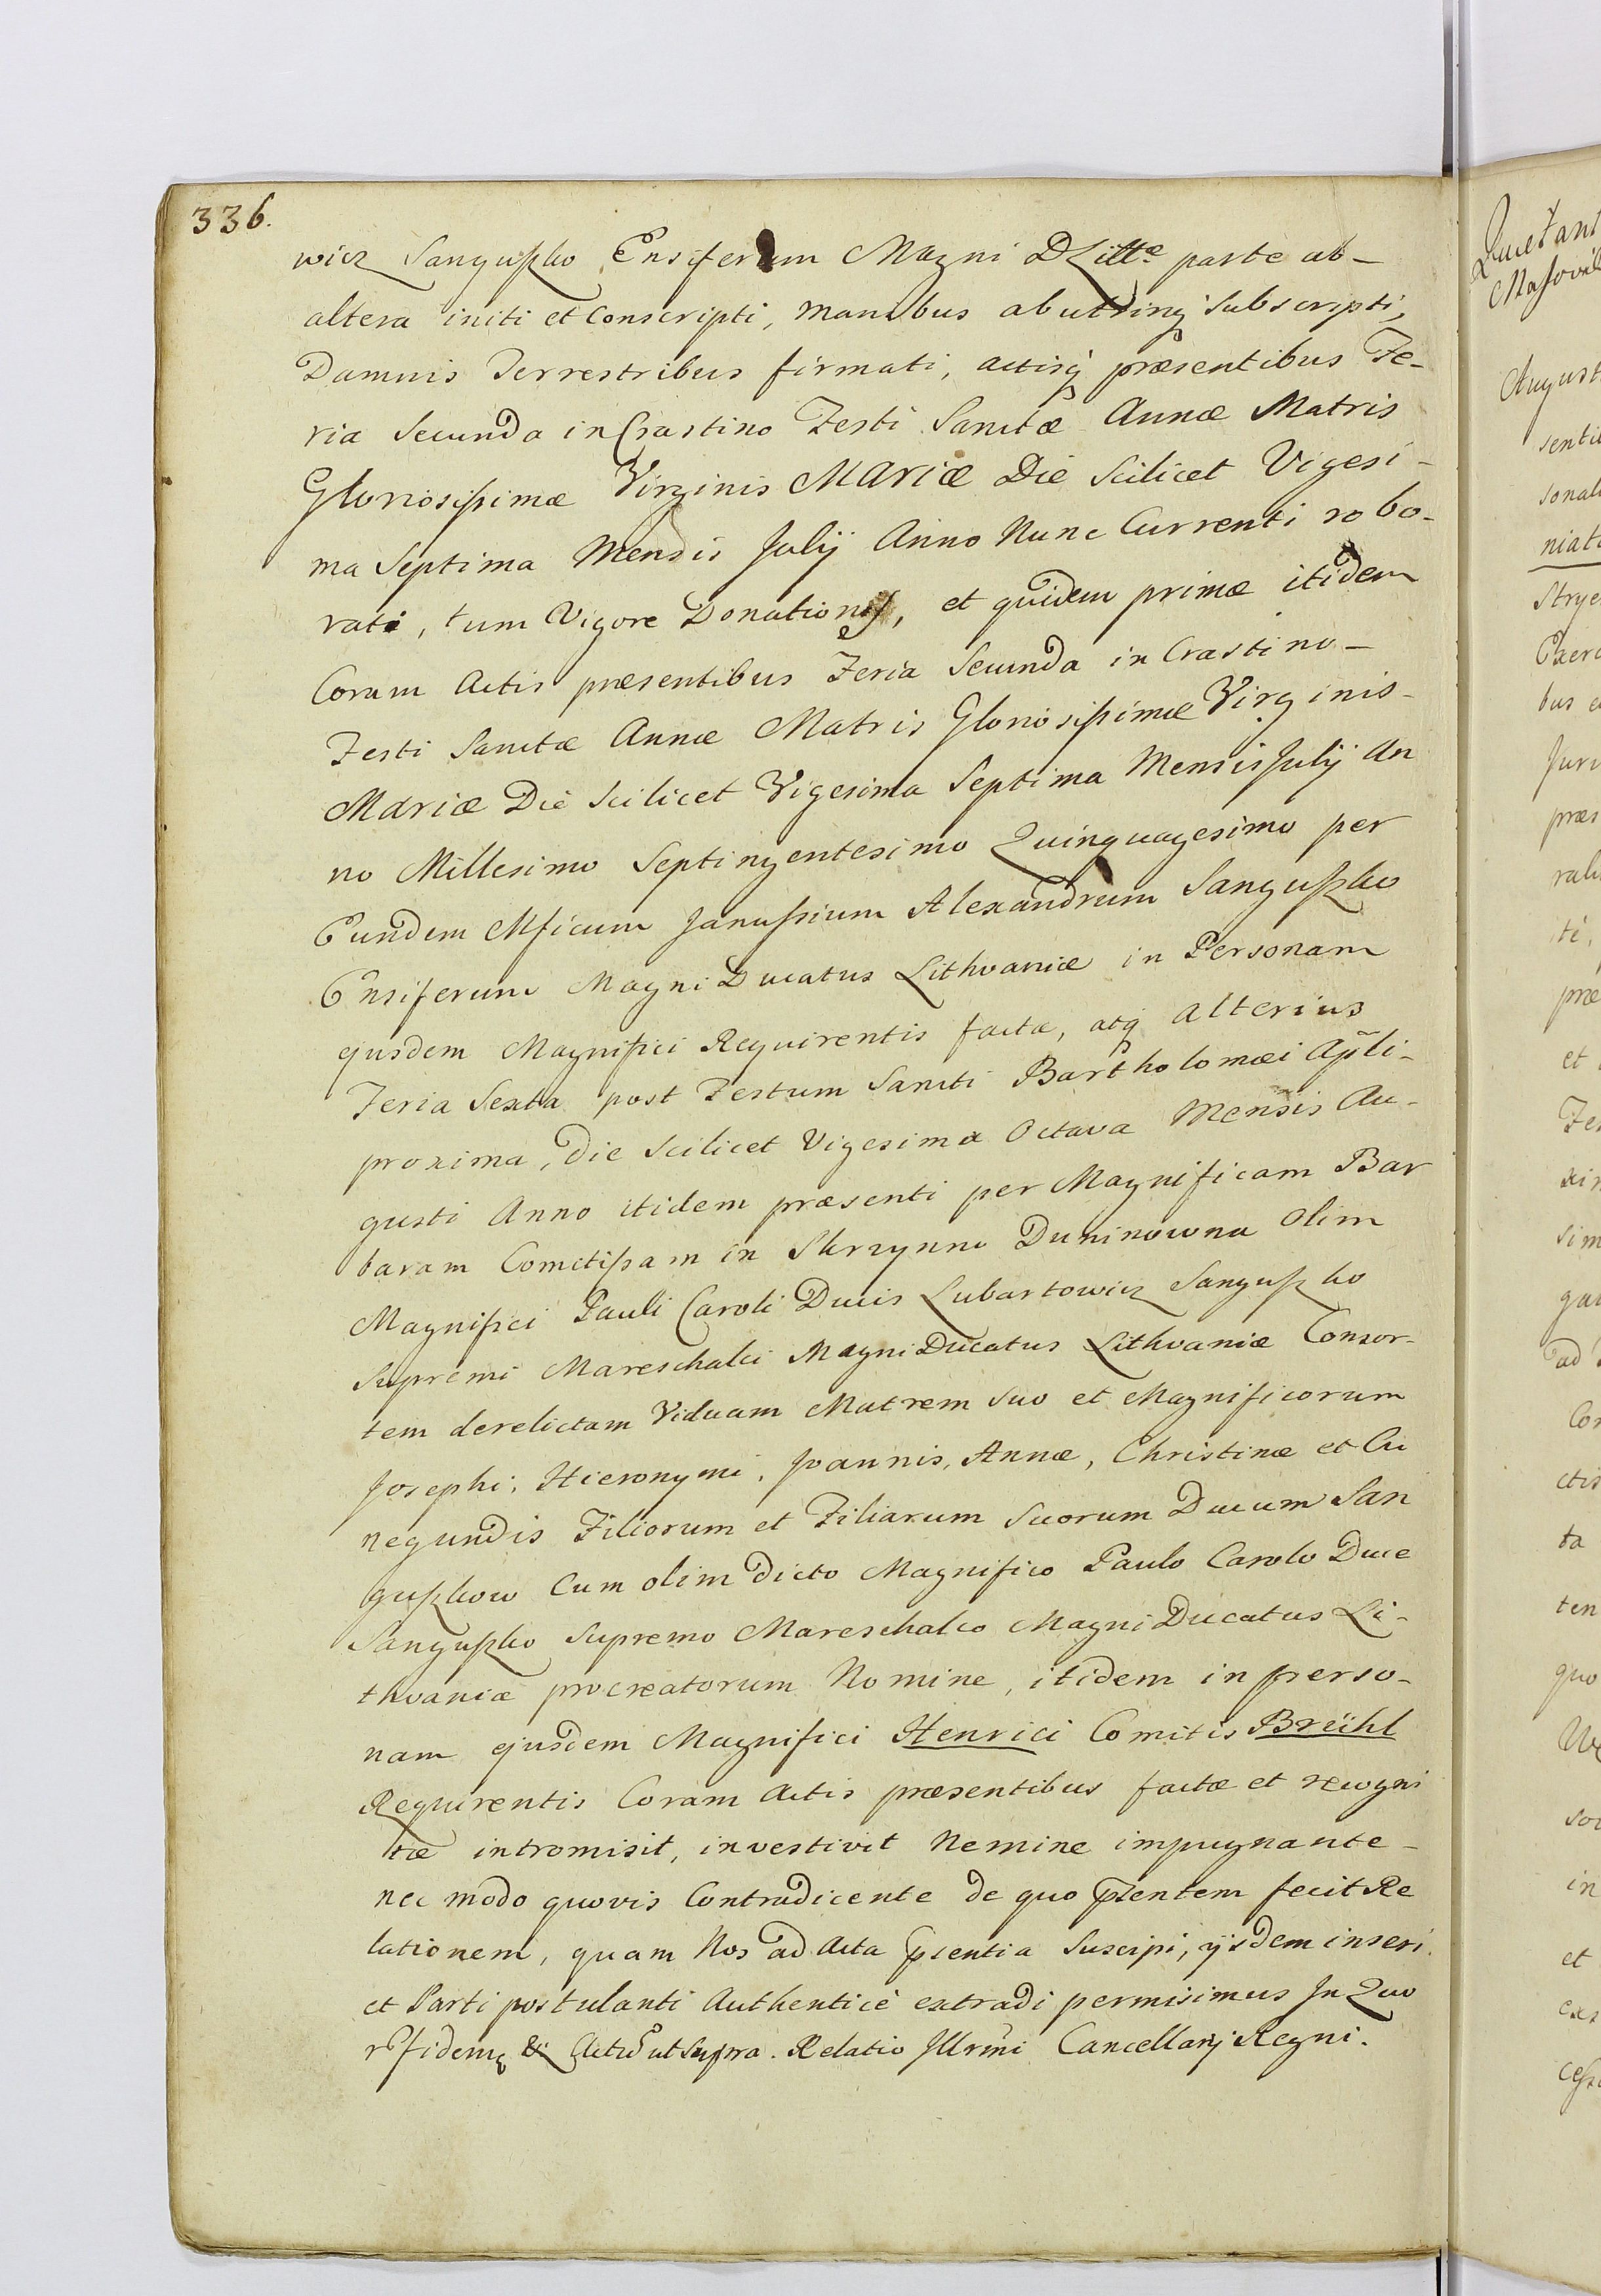 336.
wicz Sanguszko Ensiferum Magni D Littæ parte ab-
altera initi et conscripti, manibus ab utrinq subscripti,
Damnis Terrestribus firmati, actisq præsentibus Fe-
ria Secunda in Crastino Festi Sanctæ Annæ Matris
Gloriosissimæ Virginis MARIÆ Die Scilicet Vigesi-
ma Septima Mensis Julij Anno Nunc Currenti robo-
rati, tum Vigore Donationis, et quidem primæ itidem
Coram Actis præsentibus Feria Secunda in Crastino-
Festi Sanctæ Annæ Matris Gloriosissimæ Virginis-
Mariæ Die Scilicet Vigesima Septima Mensis Julij An
no Millesimo Septingentesimo Quinquagesimo per
Eundem Mficum Janussium Alexandrum Sanguszko
Ensiferum Magni Ducatus Lithvaniæ in Personam
ejusdem Magnifici Requirentis factæ, atq alterius
Feria Sexta post Festum Sancti Bartholomæi Apli-
proxima, Die Scilicet Vigesima Octava Mensis Au-
gusti Anno itidem præsenti per Magnificam Bar
baram Comitissam in Skrzynno Duninowna Olim
Magnifici Pauli Caroli Ducis Lubartowicz Sanguszko
Supremi Mareschalci Magni Ducatus Lithvaniæ Consor-
tem derelictam Viduam Matrem suo et Magnificorum
Josephi, Hieronymi, Joannis, Annæ, Christinæ et Cu
negundis Filiorum et Filiarum Suorum Ducum San
guszkow Cum olim dicto Magnifico Paulo Carolo Duce
Sanguszko Supremo Mareschalco Magni Ducatus Li-
thvaniæ procreatorum Nomine, itidem in perso-
nam ejusdem Magnifici Henrici Comitis Breühl
Requirentis Coram Actis præsentibus factæ et recogni
tæ intromisit, investivit Nemine impugnante-
nec modo quovis Contradicente de quo pñtem fecit Re
lationem, quam Nos ad Acta pñtia Suscipi, ijsdem inseri
et Parti postulanti Authenticè extradi permisimus In Quo
r fidemq & Actũ ut supra. Relatio Illrmi Cancellarij Regni.
Quietant
August
senti
sonal
niat
Strye
Exerc
bus e
Juri
præs
rali
tè,
præ
et
Fe
xim
sim
gau
ad
Con
ctis
ta
ten
quo
in
et